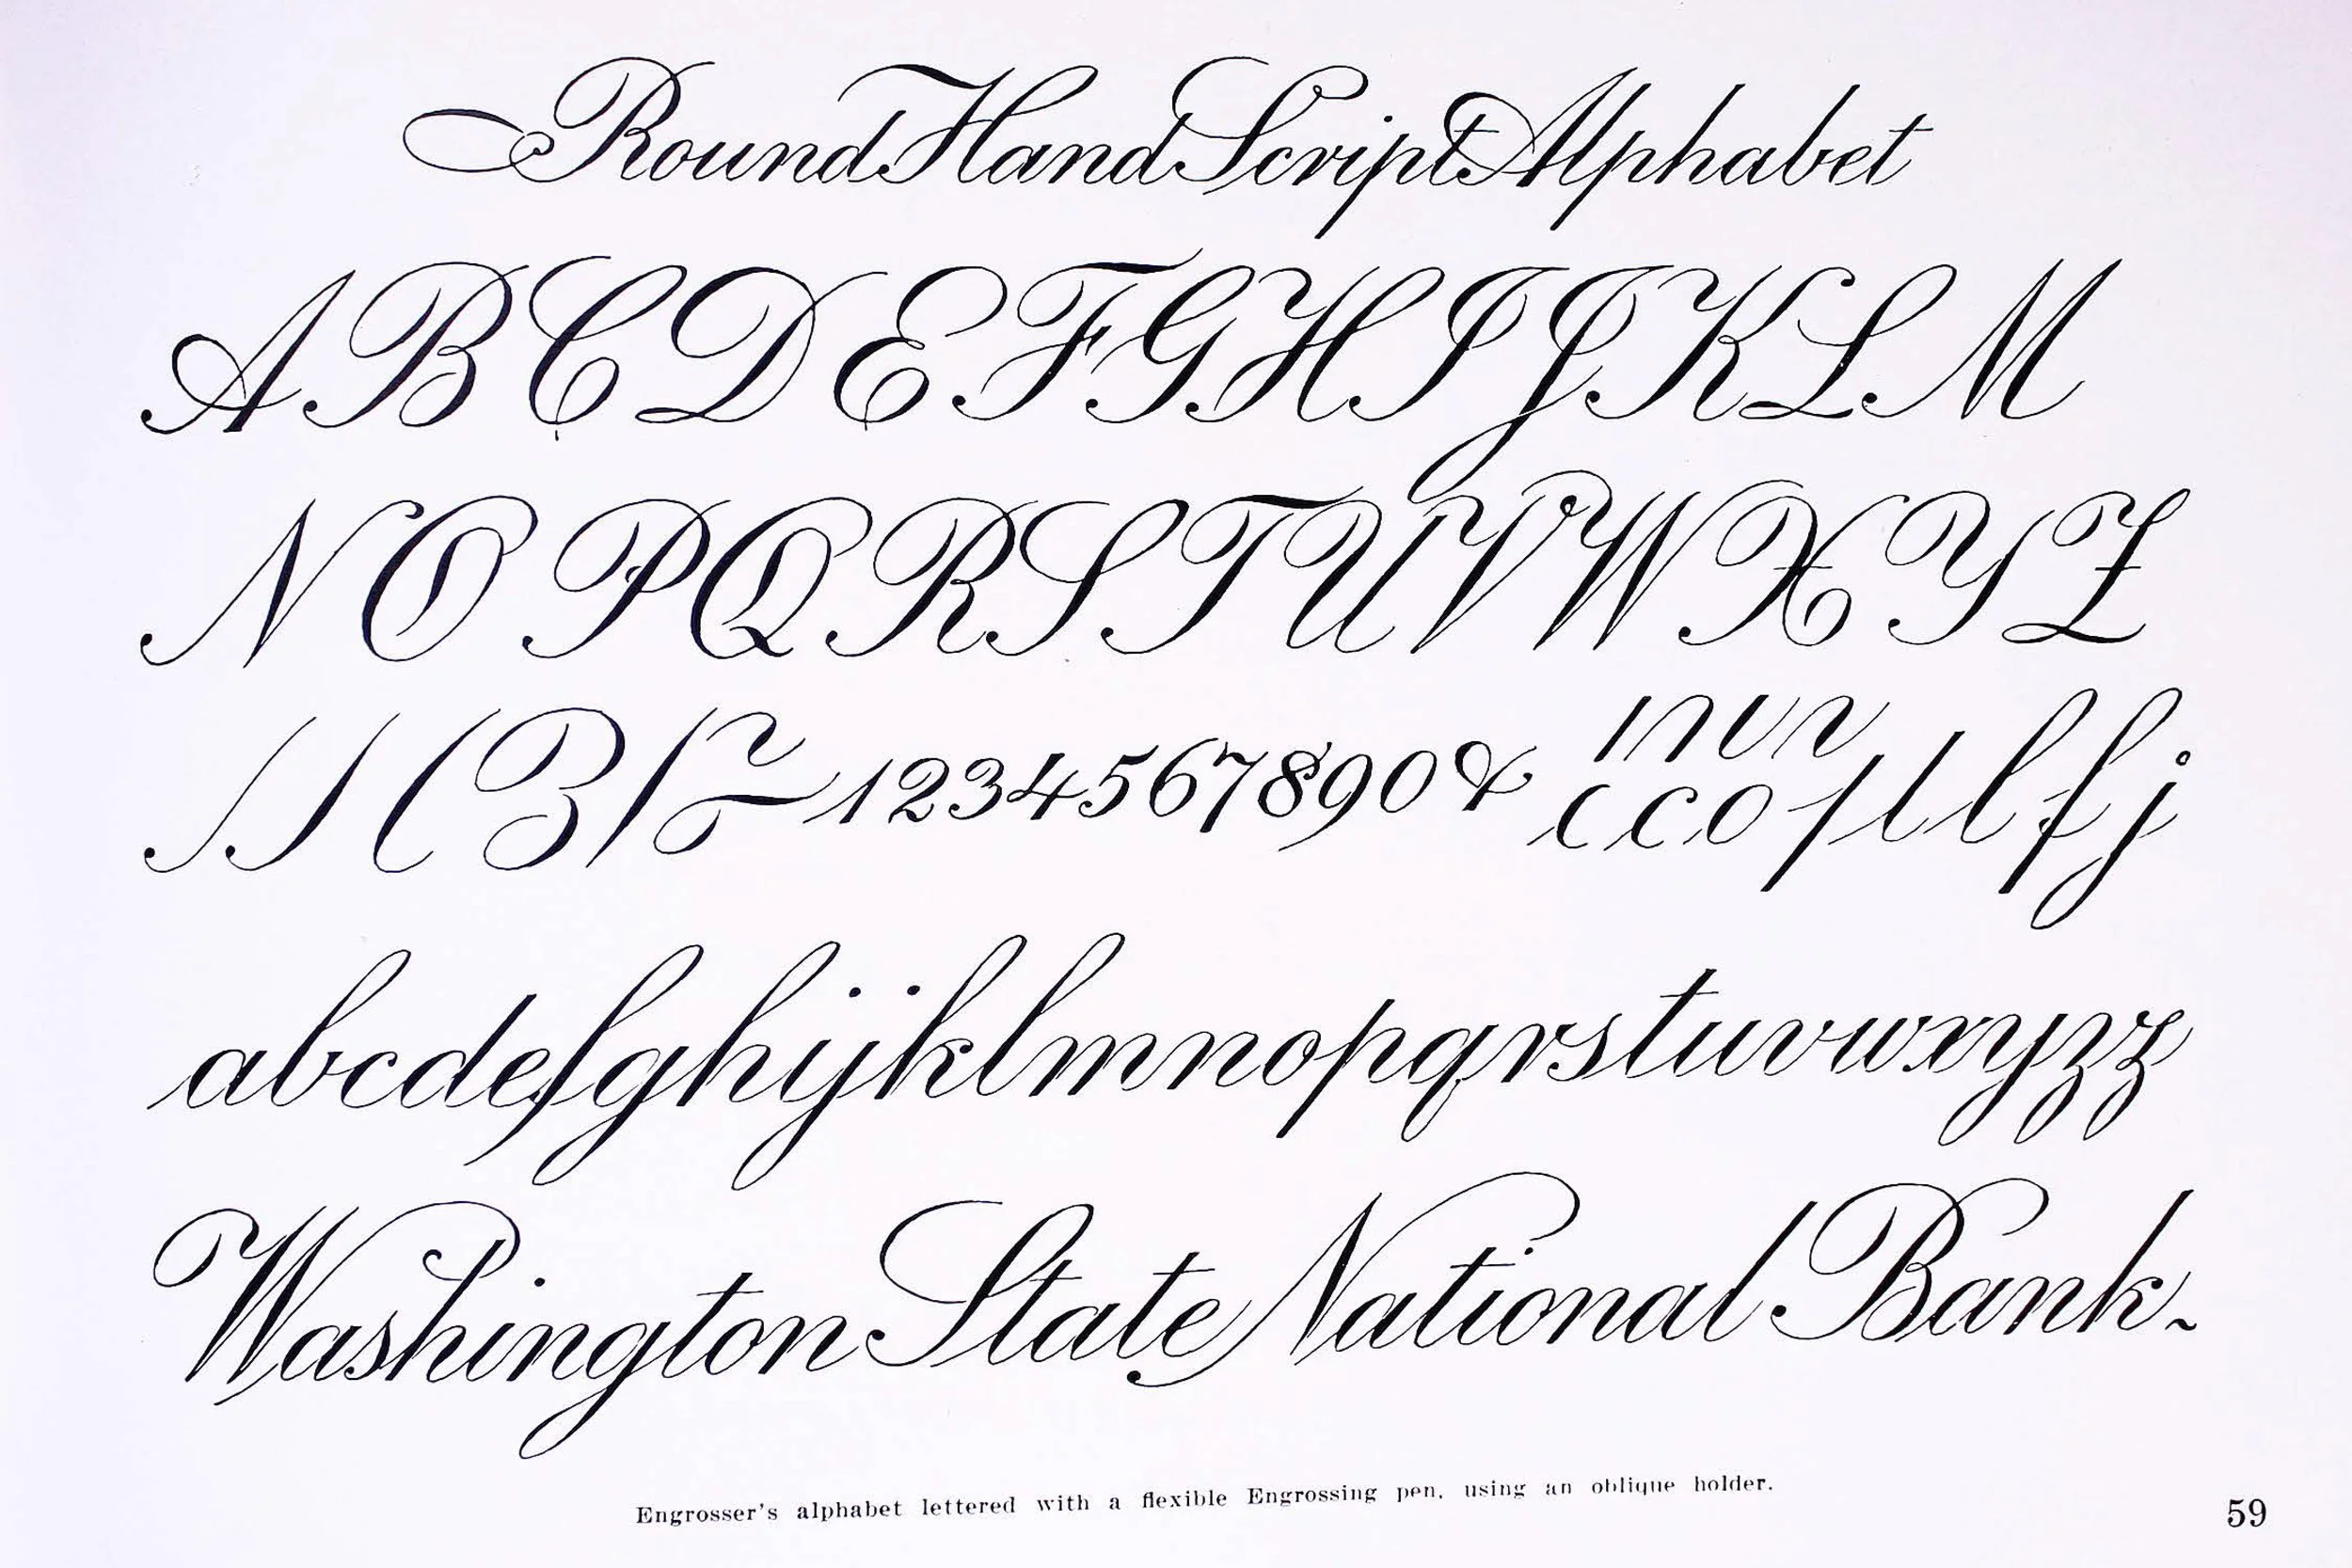 Round Hand Script Alphabet
A B C D E F G H I J K L M
N O P Q R S T U V W X Y Z
1234567890 &
abcdefghijklmnopqrstuvwxyzz
Washington State National Bank.
Engrosser's alphabet lettered with a flexible Engrossing pen, using an oblique holder.
59